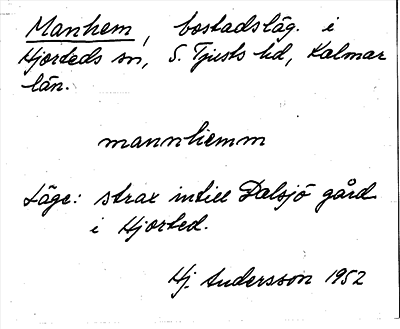 Manhem, bostadsläg. i
Hjorteds sn, S. Tjusts hd, Kalmar
län.
mannhemm
Läge: strax intill Dalsjö gård
i Hjorted.
Hj. Andersson 1952